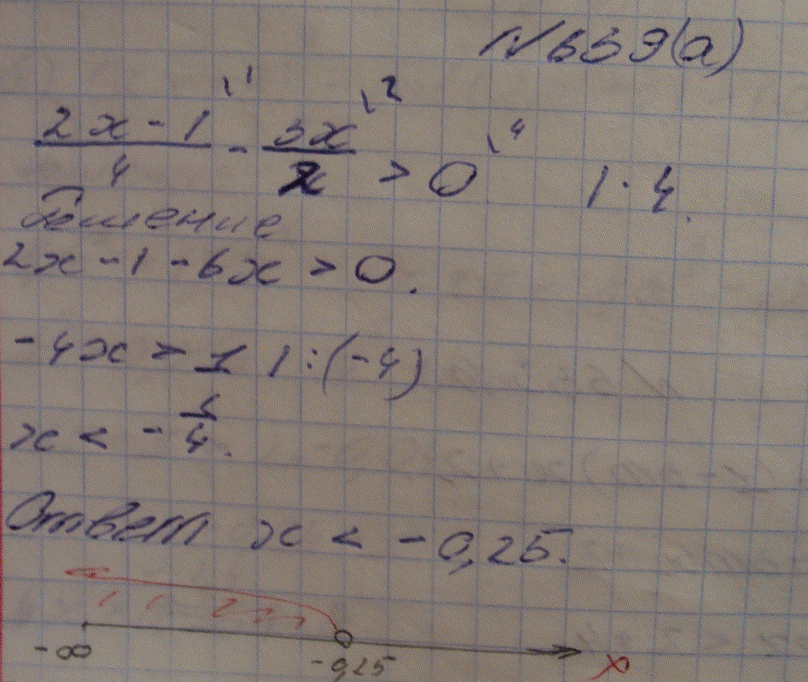 N 659(а)
(2x - 1)/4 \1 - 3x/2 \2 > 0 \4 | · 4.
Решение
2x - 1 - 6x > 0.
-4x > 1 | : (-4)
x < - 1/4.
Ответ x < - 0,25.
-∞ -0,25 x